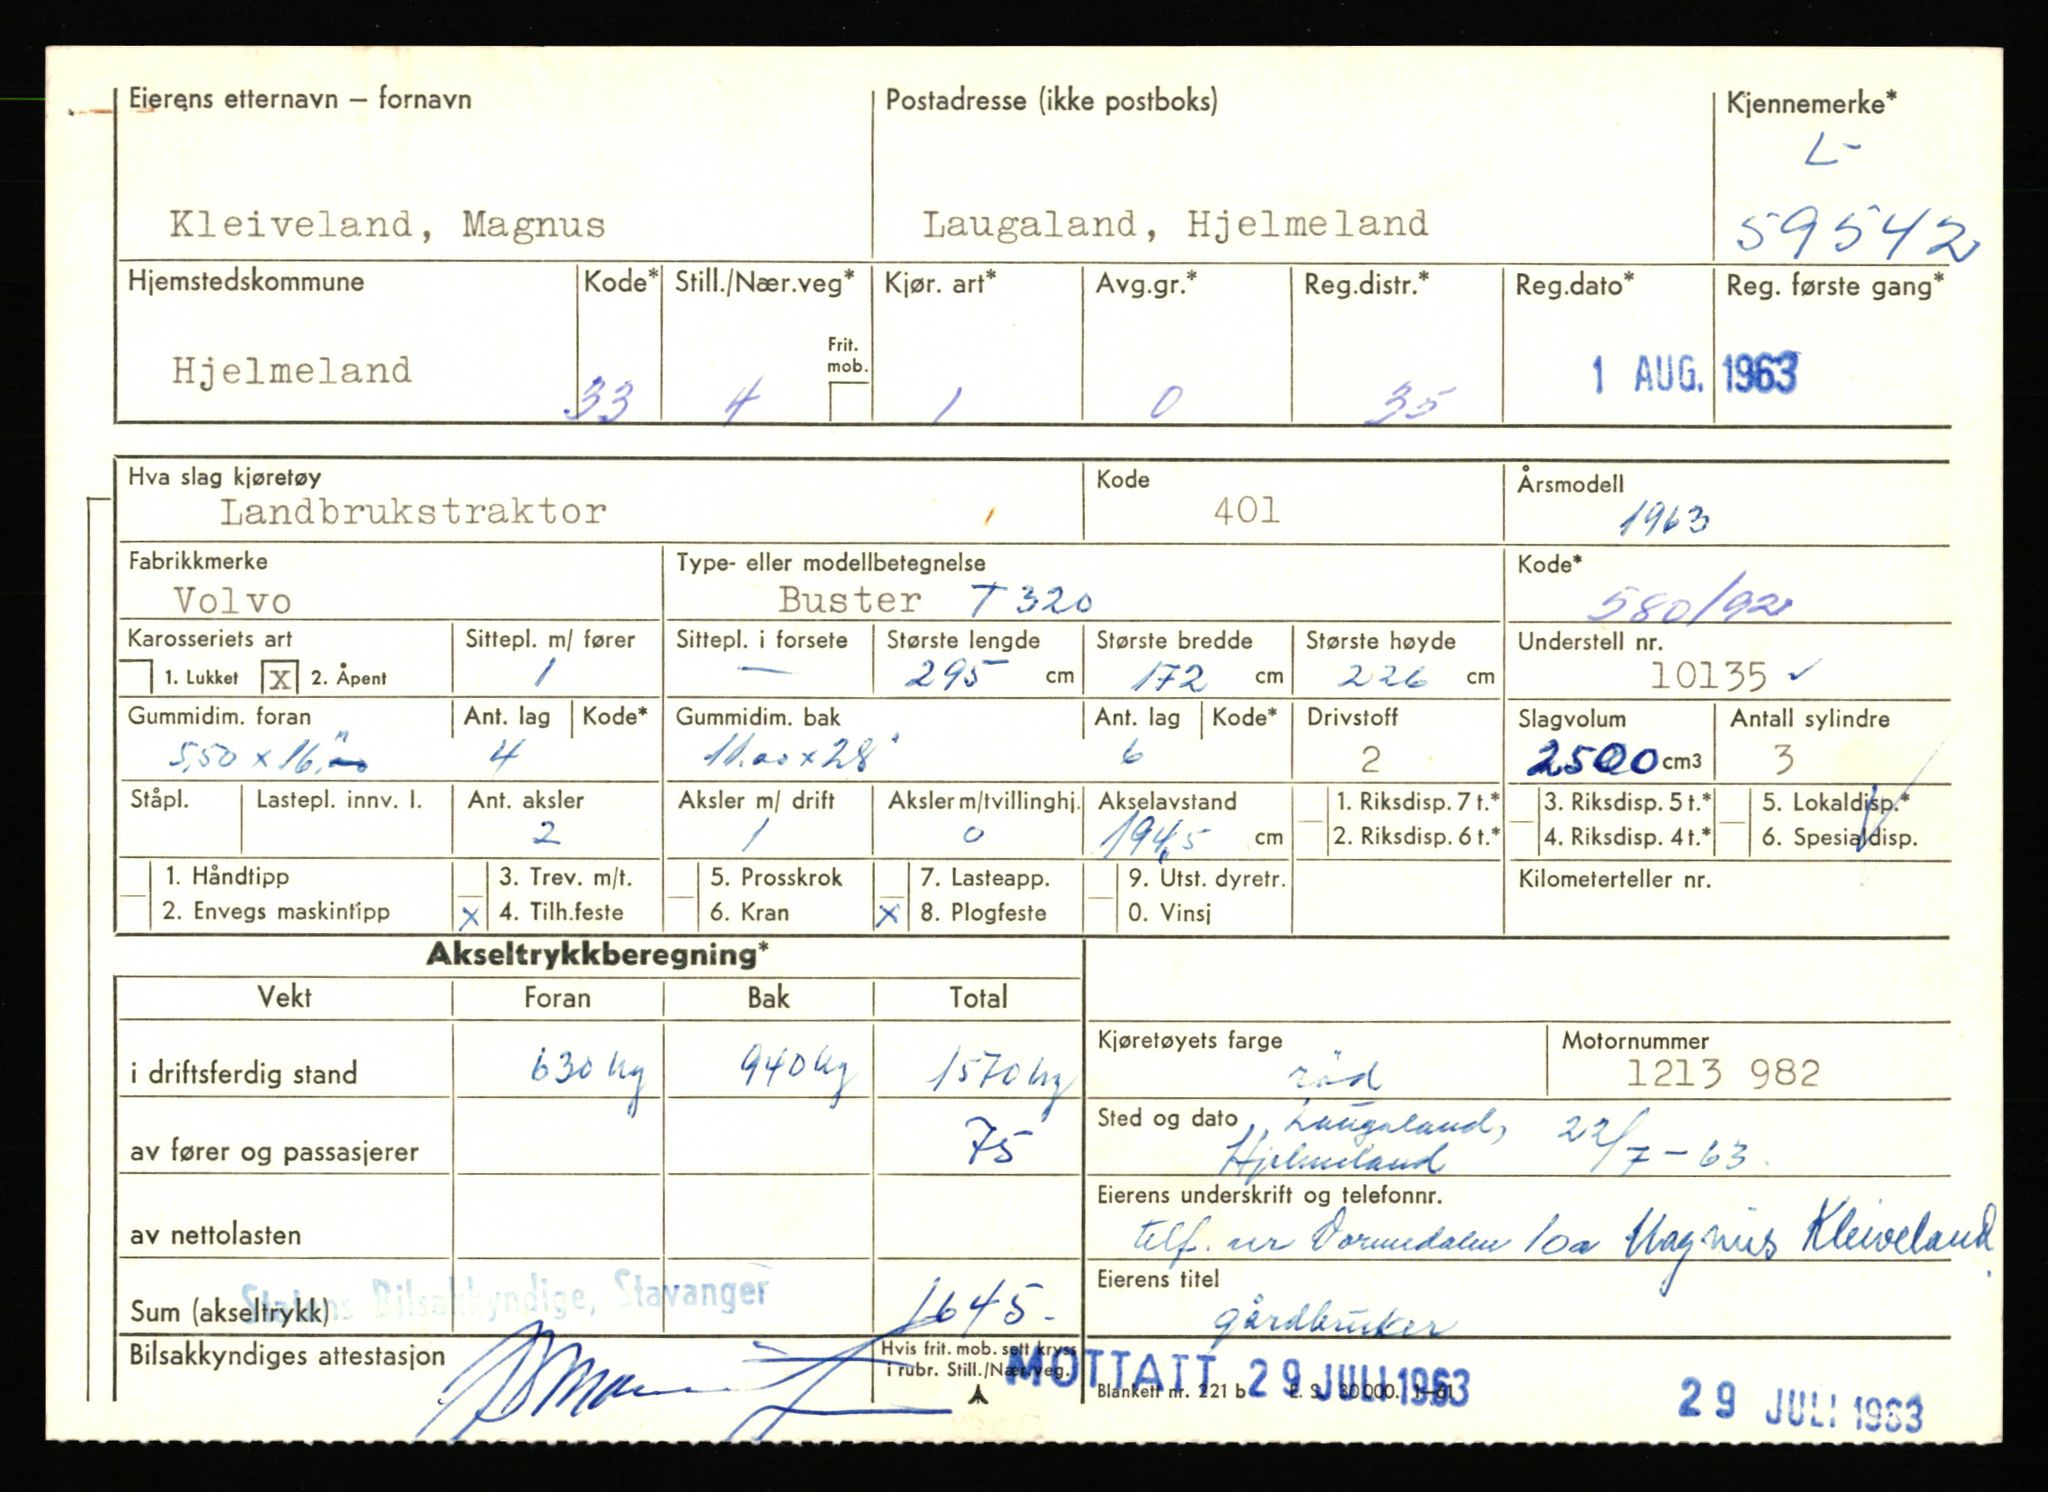 Eierens etternavn – fornavn
Postadresse (ikke postboks)
Kjennemerke*
L-
Kleiveland, Magnus
Laugaland, Hjelmeland
59542
Hjemstedskommune
Kode*
Still./Nær.veg*
Kjør. art*
Avg.gr.*
Reg.distr.*
Reg.dato*
Reg. første gang*
Frit. mob.
Hjelmeland
33
4
1
0
35
1 AUG. 1963
Hva slag kjøretøy
Kode
Årsmodell
Landbrukstraktor
401
1963
Fabrikkmerke
Type- eller modellbetegnelse
Kode*
Volvo
Buster T 320
580/92
Karosseriets art
Sittepl. m/ fører
Sittepl. i forsete
Største lengde
Største bredde
Største høyde
Understell nr.
1. Lukket X 2. Åpent
1
—
295 cm
172 cm
226 cm
10135 ✓
Gummidim. foran
Ant. lag
Kode*
Gummidim. bak
Ant. lag
Kode*
Drivstoff
Slagvolum
Antall sylindre
5,50 x 16"
4
11.00 x 28"
6
2
2500 cm3
3
Ståpl.
Lastepl. innv. l.
Ant. aksler
Aksler m/ drift
Aksler m/tvillinghj.
Akselavstand
1. Riksdisp. 7 t.*
3. Riksdisp. 5 t.*
5. Lokaldisp.*
2
1
0
194,5 cm
2. Riksdisp. 6 t.*
4. Riksdisp. 4 t.*
6. Spesialdisp.
1. Håndtipp
3. Trev. m/t.
5. Prosskrok
7. Lasteapp.
9. Utst. dyretr.
Kilometerteller nr.
2. Envegs maskintipp
x 4. Tilh.feste
6. Kran
x 8. Plogfeste
0. Vinsj
Akseltrykkberegning*
Vekt
Foran
Bak
Total
Kjøretøyets farge
Motornummer
i driftsferdig stand
630 kg
940 kg
1570 kg
rød
1213 982
av fører og passasjerer
75
Sted og dato
Laugaland,
Hjelmeland
22/7-63.
av nettolasten
Eierens underskrift og telefonnr.
telf. nr 10a Magnus Kleiveland
Statens Bilsakkyndige, Stavanger
Sum (akseltrykk)
1645.-
Eierens titel
gårdbruker
Bilsakkyndiges attestasjon
Hvis frit. mob. sett kryss
i rubr. Still./Nær.veg.
MOTTATT 29 JULI 1963
Blankett nr. 221 b E. S. 30000. 1-61
29 JULI 1963